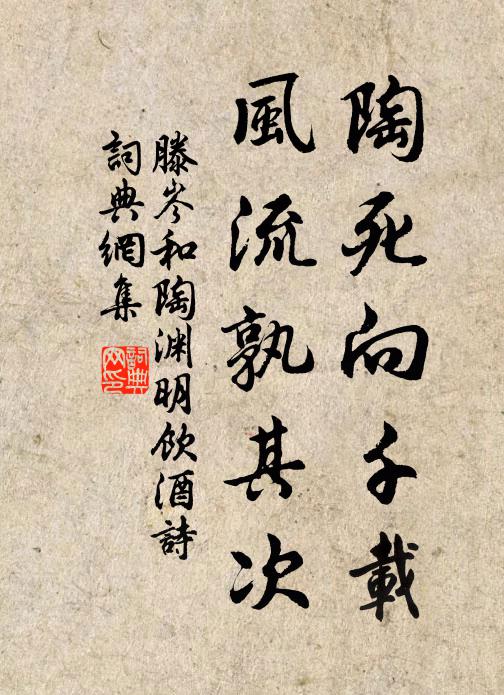 陶死向千載
風流孰其次
滕岑和陶渊明飲酒詩
詞典網集
詞典网印